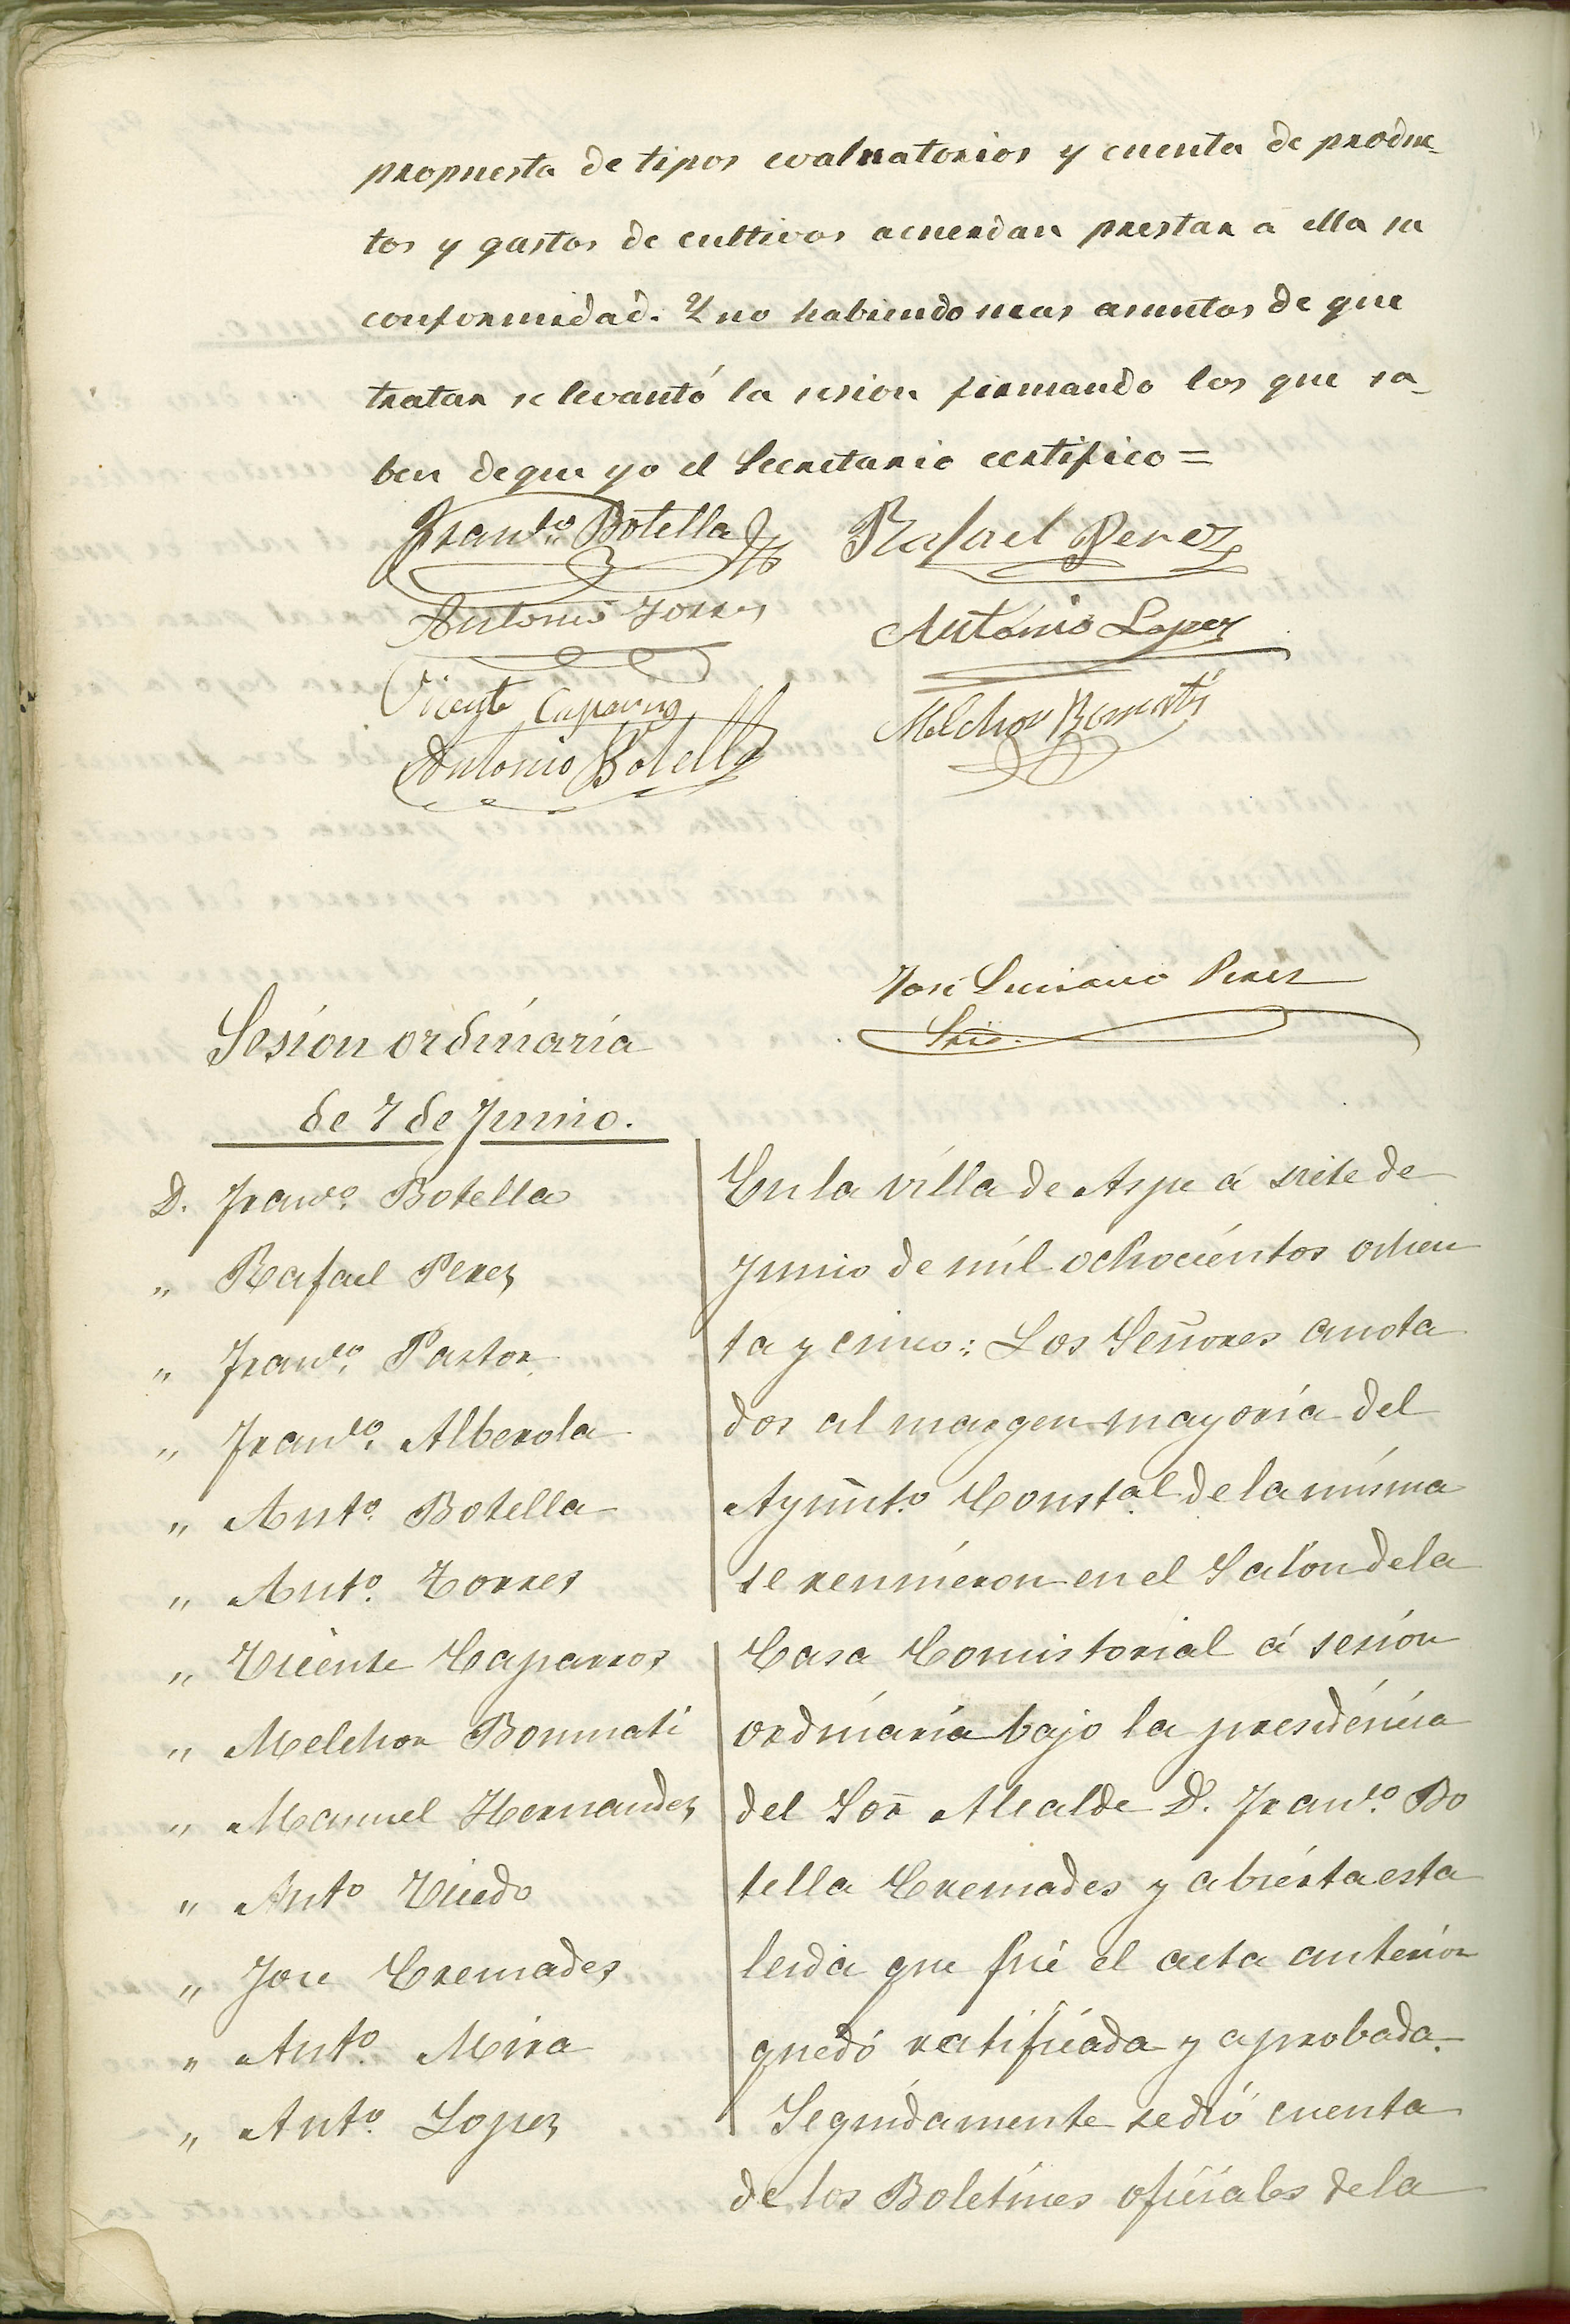 propuesta de tipos evaluatorios y cuenta de produc-
tos y gastos de cultivos acuerdan prestar á ella su
conformidad. Y no habiendo mas asuntos de que
tratar se levantó la sesion firmando los que sa-
ben de que yo el Secretario certifico=
Franco. Botella
Rafael Perez
Antonio Torres
Antonio Lopez
Vicente Caparros
Melchor Bonmati
Antonio Botella
José Luciano Perez
Srio.
Sesion ordinaria
de 7 de Junio.
D. Franco. Botella
" Rafael Perez
" Franco. Pastor
" Franco. Alberola
" Anto. Botella
" Anto. Torres
" Vicente Caparros
" Melchor Bonmati
" Manuel Hernandez
" Anto
" Jose Cremades
" Anto. Mira
" Anto. Lopez
En la villa de Aspe á siete de
Junio de mil ochocientos ochen
ta y cinco: Los Señores anota
dos al margen mayoria del
Ayunto. Constal. de la misma
se reunieron en el Salon de la
Casa Comistorial á sesion
ordinaria bajo la presidencia
del Sor Alcalde D. Franco. Bo
tella Cremades y abierta esta
leida que fué el acta anterior
quedó ratificada y aprobada.
Seguidamente se dió cuenta
de los Boletines oficiales de la